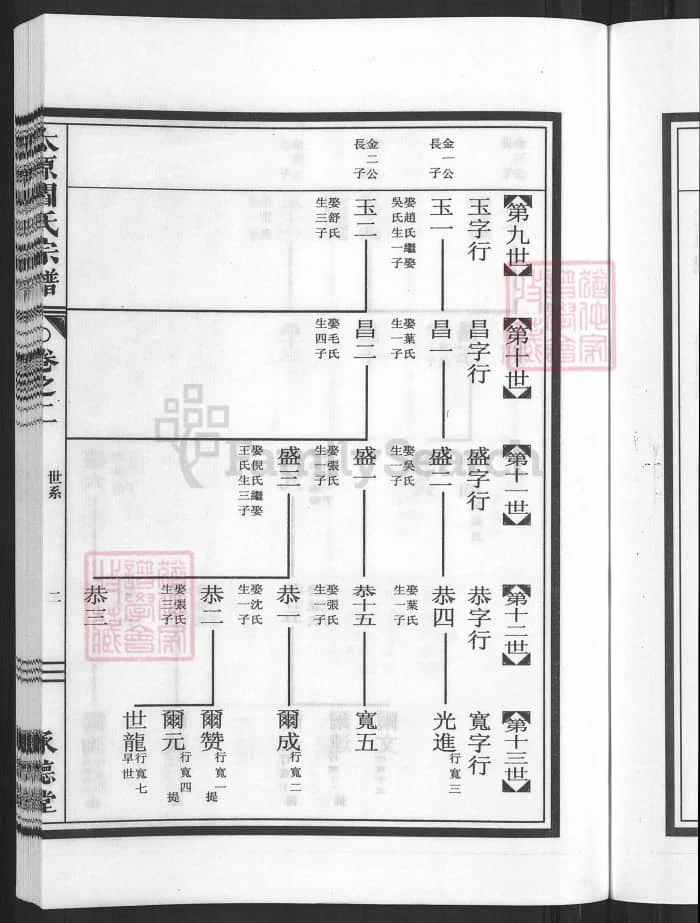 第九世
玉字行
金一公
長子
玉一
娶趙氏繼娶
吳氏生一子
金二公
長子
玉二
娶舒氏
生三子
第十世
昌字行
昌一
娶葉氏
生一子
昌二
娶毛氏
生四子
第十一世
盛字行
盛二
娶吳氏
生一子
盛一
娶張氏
生一子
盛三
娶倪氏繼娶
王氏生三子
第十二世
恭字行
恭四
娶葉氏
生一子
恭十五
娶張氏
生一子
恭一
娶沈氏
生一子
恭二
娶張氏
生三子
恭三
第十三世
寬字行
光進
行寬三
寬五
爾成
行寬二
爾贊
行寬一
提
爾元
行寬四
提
世龍
行寬七
早世
太原閻氏宗譜
卷之二
世系
二
承德堂
FamilySearch